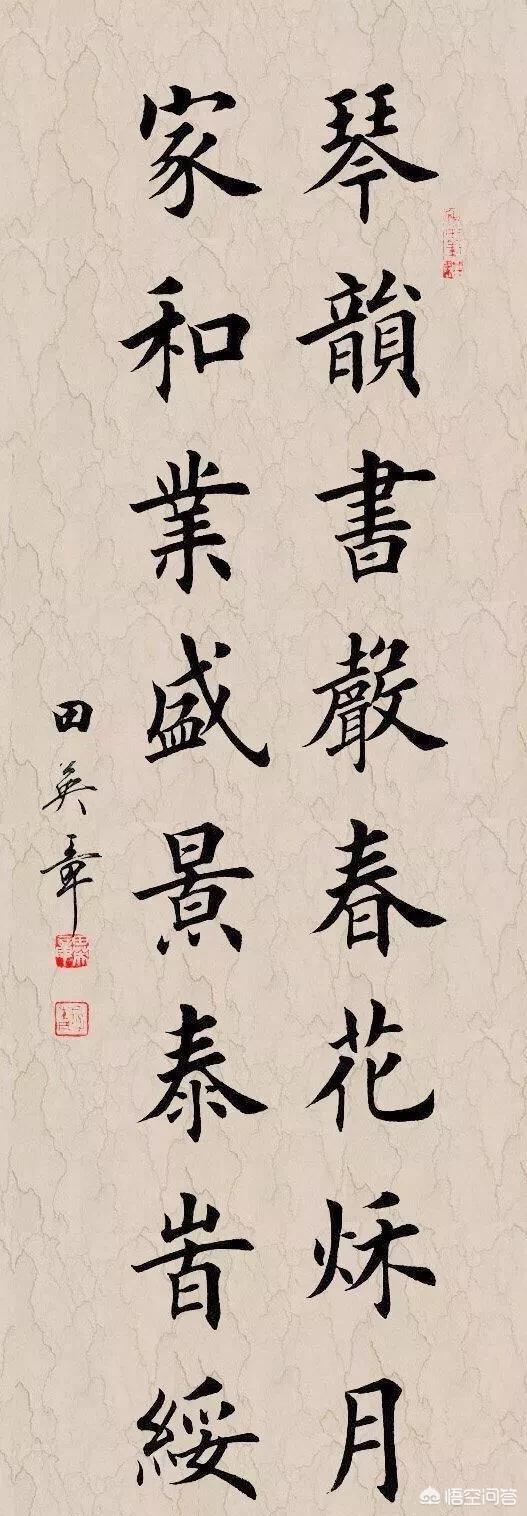 琴韻書聲春花秌月
家和業盛景泰峕綏
田英章
悟空问答